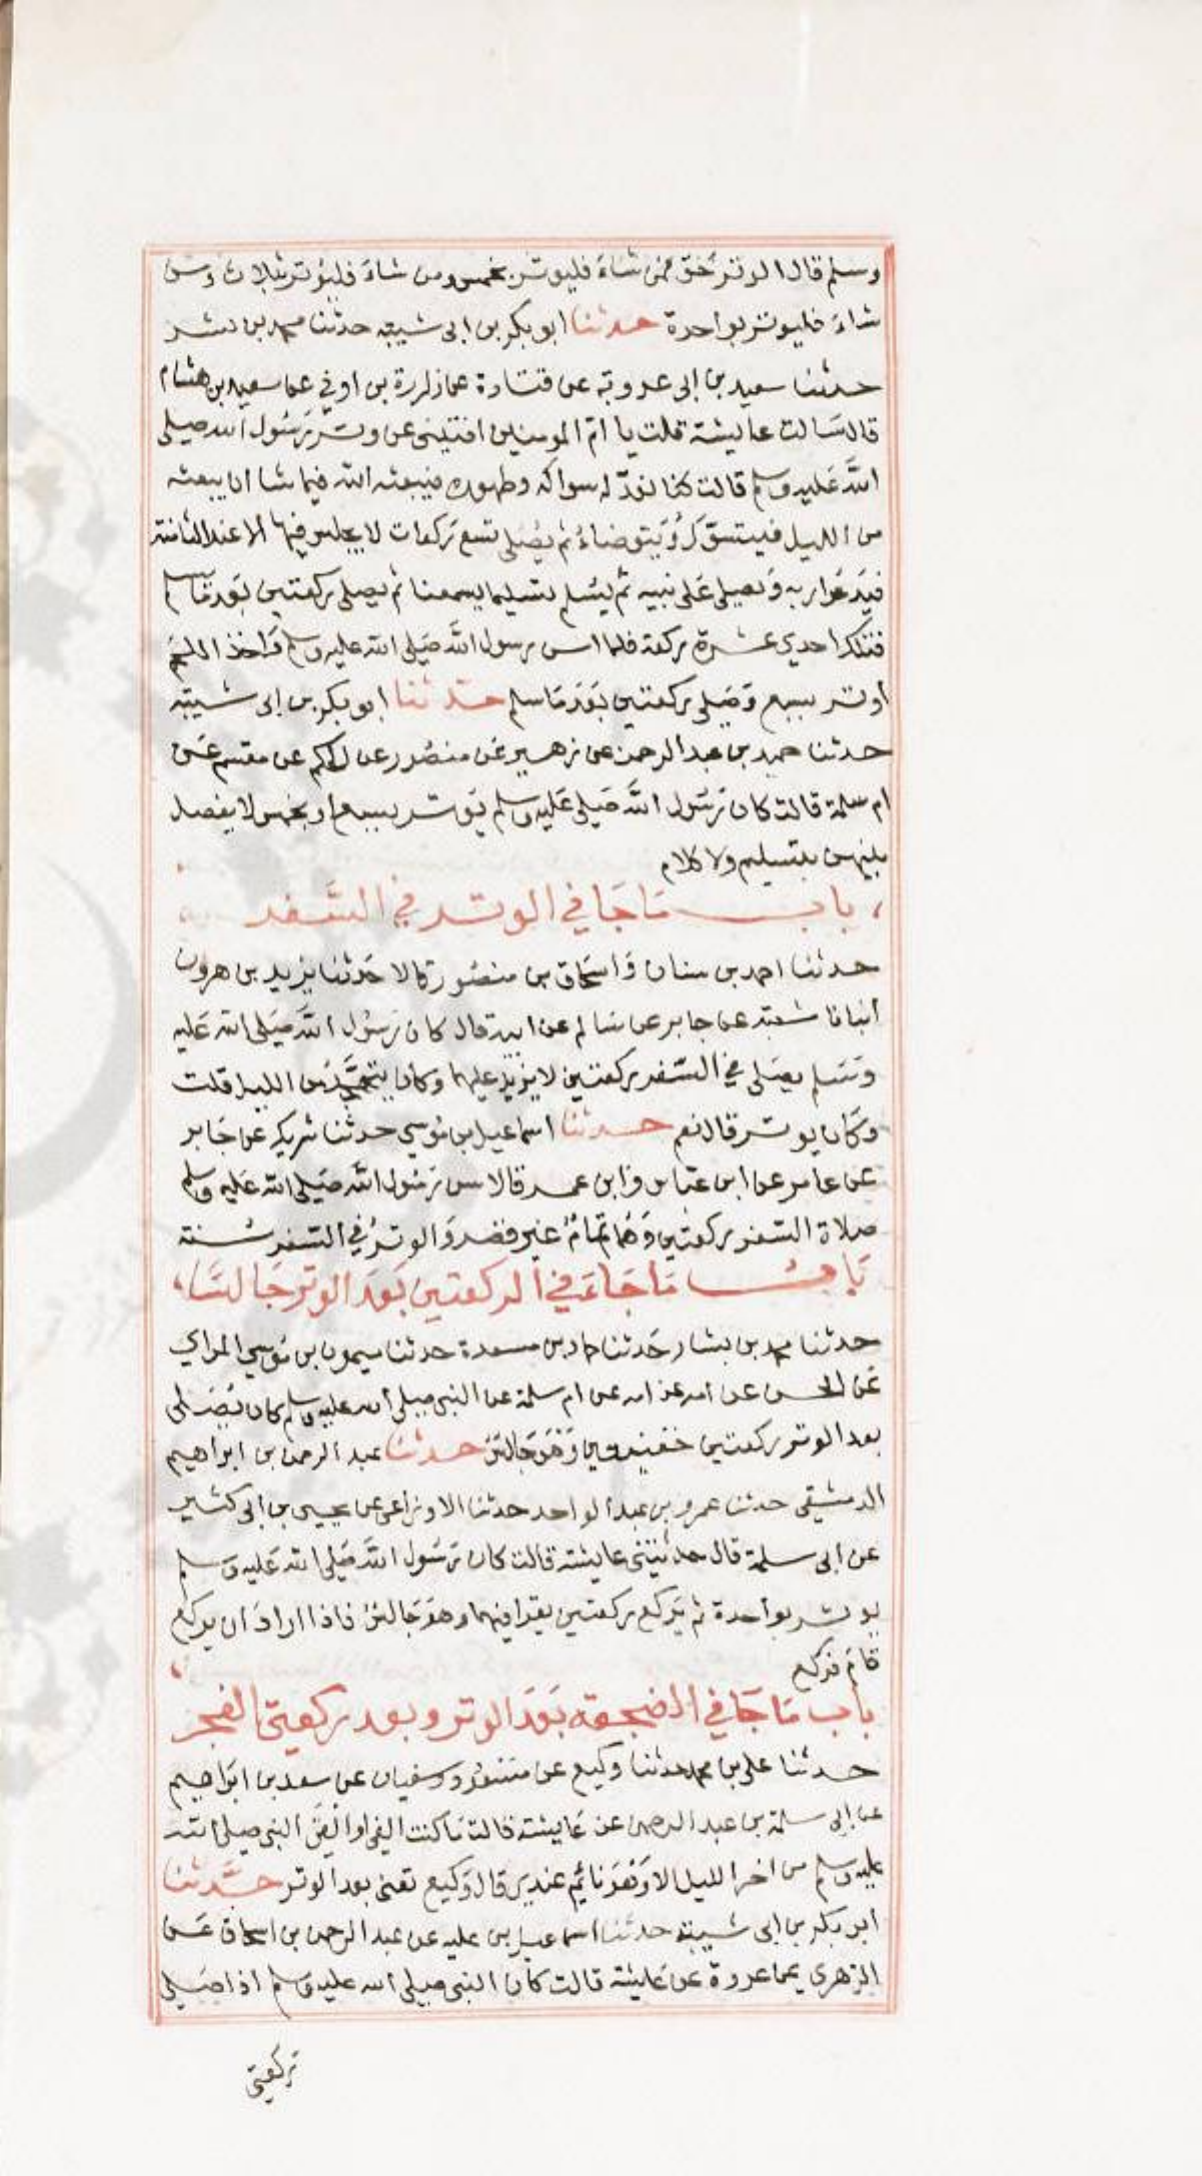 وسلم قال الوتر حق فمن شاء فليوتر بخمس ومن شاء فليوتر بثلاث ومن
شاء فليوتر بواحدة حدثنا ابو بكر بن ابى شيبة حدثنا محمد بن بشر
حدثنا سعيد بن ابى عروبة عن قتادة عن زرارة بن اوفي عن سعيد بن هشام
قال سالت عايشة قلت يا ام المومنين افتيني عن وتر رسول الله صلى
الله عليه وسلم قالت كنا نعد له سواكه وطهوره فيبعثه الله فيما شا ان يبعثه
من الليل فيتسوك ويتوضاء ثم يصلى تسع ركعات لا يجلس فيها الا عند الثامنة
فيدعوا ربه ويصلى على نبيه ثم يسلم تسليما يسمعنا ثم يصلى ركعتين بعد ما سلم
فتلك احدي عشرة ركعة فلما اسن رسول الله صلى الله عليه وسلم واخذ اللحم
اوتر بسبع وصلى ركعتين بعد ما سلم حدثنا ابو بكر بن ابى شيبة
حدثنا حميد بن عبد الرحمن عن زهير عن منصور عن الحكم عن مقسم عن
ام سلمة قالت كان رسول الله صلى عليه وسلم يوتر بسبع او بخمس لا يفصل
بينهن بتسليم ولا كلام
باب ما جا في الوتر في السفر
حدثنا احمد بن سنان واسحاق بن منصور قالا حدثنا يزيد بن هرون
انبانا شعبة عن جابر عن سالم عن ابيه قال كان رسول الله صلى الله عليه
وسلم يصلى في السفر ركعتين لا يزيد عليهما وكان يتهجد من الليل قلت
وكان يوتر قال نعم حدثنا اسماعيل بن موسي حدثنا شريك عن جابر
عن عامر عن ابن عباس وابن عمر قالا سن رسول الله صلى الله عليه وسلم
صلاة السفر ركعتين وهما تمام غير قصر والوتر في السفر سنة
باب ما جاء في الركعتين بعد الوتر جالسا
حدثنا محمد بن بشار حدثنا حماد بن مسعدة حدثنا ميمون بن موسي المراي
عن الحسن عن امه عن ام سلمة عن النبى صلى الله عليه وسلم كان يصلى
بعد الوتر ركعتين خفيفتين وهو جالس حدثنا عبد الرحمن بن ابراهيم
الدمشقى حدثنا عمرو بن عبد الواحد حدثنا الاوزاعى عن يحيى بن ابى كثير
عن ابى سلمة قال حدثتني عايشة قالت كان رسول الله صلى الله عليه وسلم
يوتر بواحدة ثم يركع ركعتين يقرا فيهما وهو جالس فاذا اراد ان يركع
قام فركع
باب ما جا في الضجعة بعد الوتر وبعد ركعتي الفجر
حدثنا على بن محمد حدثنا وكيع عن مسعر وسفيان عن سعد بن ابراهيم
عن ابى سلمة بن عبد الرحمن عن عايشة قالت ما كنت الفى او القى النبى صلى الله
عليه وسلم من اخر الليل الا وهو نائم عندي قال وكيع تعنى بعد الوتر حدثنا
ابو بكر بن ابى شيبة حدثنا اسماعيل بن عليه عن عبد الرحمن بن اسحاق عن
الزهري عن عروة عن عايشة قالت كان النبى صلى الله عليه وسلم اذا صلى
ركعتي